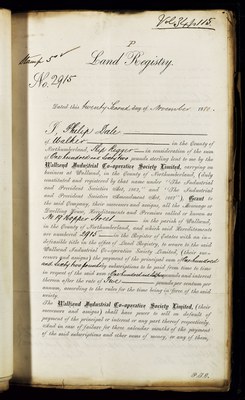 P
Land Registry.
No. 2915
Dated this twenty second day of November
I, Philip Dale
of Walker in the County of
Northumberland, Ship Rigger in consideration of the sum
of One hundred and sixty two pounds sterling lent to me by the
Wallsend Industrial Co-operative Society Limited, carrying on
business at Wallsend, in the County of Northumberland, (duly
constituted and registered by that name under "The Industrial
and Provident Societies Act, and "The Industrial
and Provident Societies Amendment Act, Grant to
the said Company, their successors and assigns, all the Messuage or
Dwelling House, Hereditaments and Premises called or known as
Street in the parish of Wallsend,
in the County of Northumberland, and which said Hereditaments
are numbered 2915 in the Register of Estates with an in-
defeasible title in the office of Land Registry, to secure to the said
Wallsend Industrial Co-operative Society Limited, (their suc-
cessors and assigns) the payment of the principal sum of One hundred
and sixty two pounds subscriptions to be paid from time to time
in respect of the said sum One hundred and sixty two pounds and interest
thereon after the rate of Five pounds per centum per
annum, according to the rules for the time being in force of the said
society.
The Wallsend Industrial Co-operative Society Limited, (their
successors and assigns) shall have power to sell on default of
payment of the principal or interest or any part thereof respectively
and in case of failure for three calendar months of the payment
of the said subscriptions and other sums of money, or any of them,